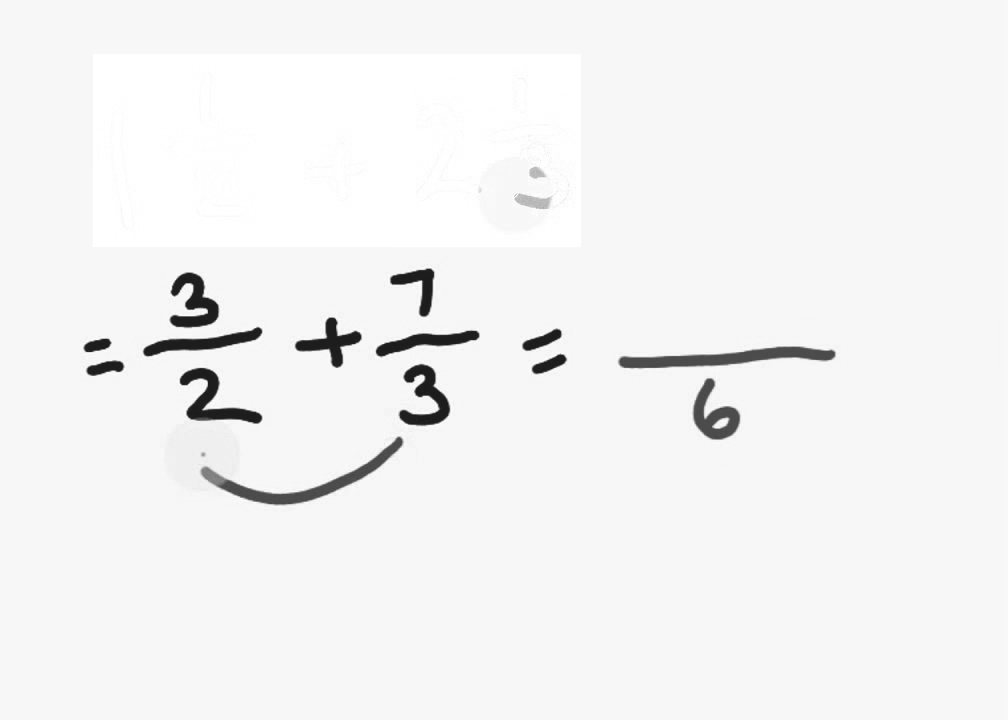 1 1/2 + 2 1/3
= 3/2 + 7/3 = /6